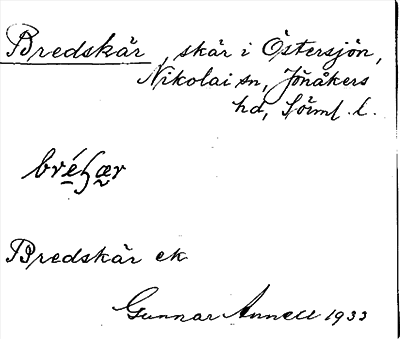 Bredskär, skär i Östersjön,
Nikolai sn, Jönåkers
hd, Söml. l.
bréʒær
Bredskär ek
Gunnar Annell 1933